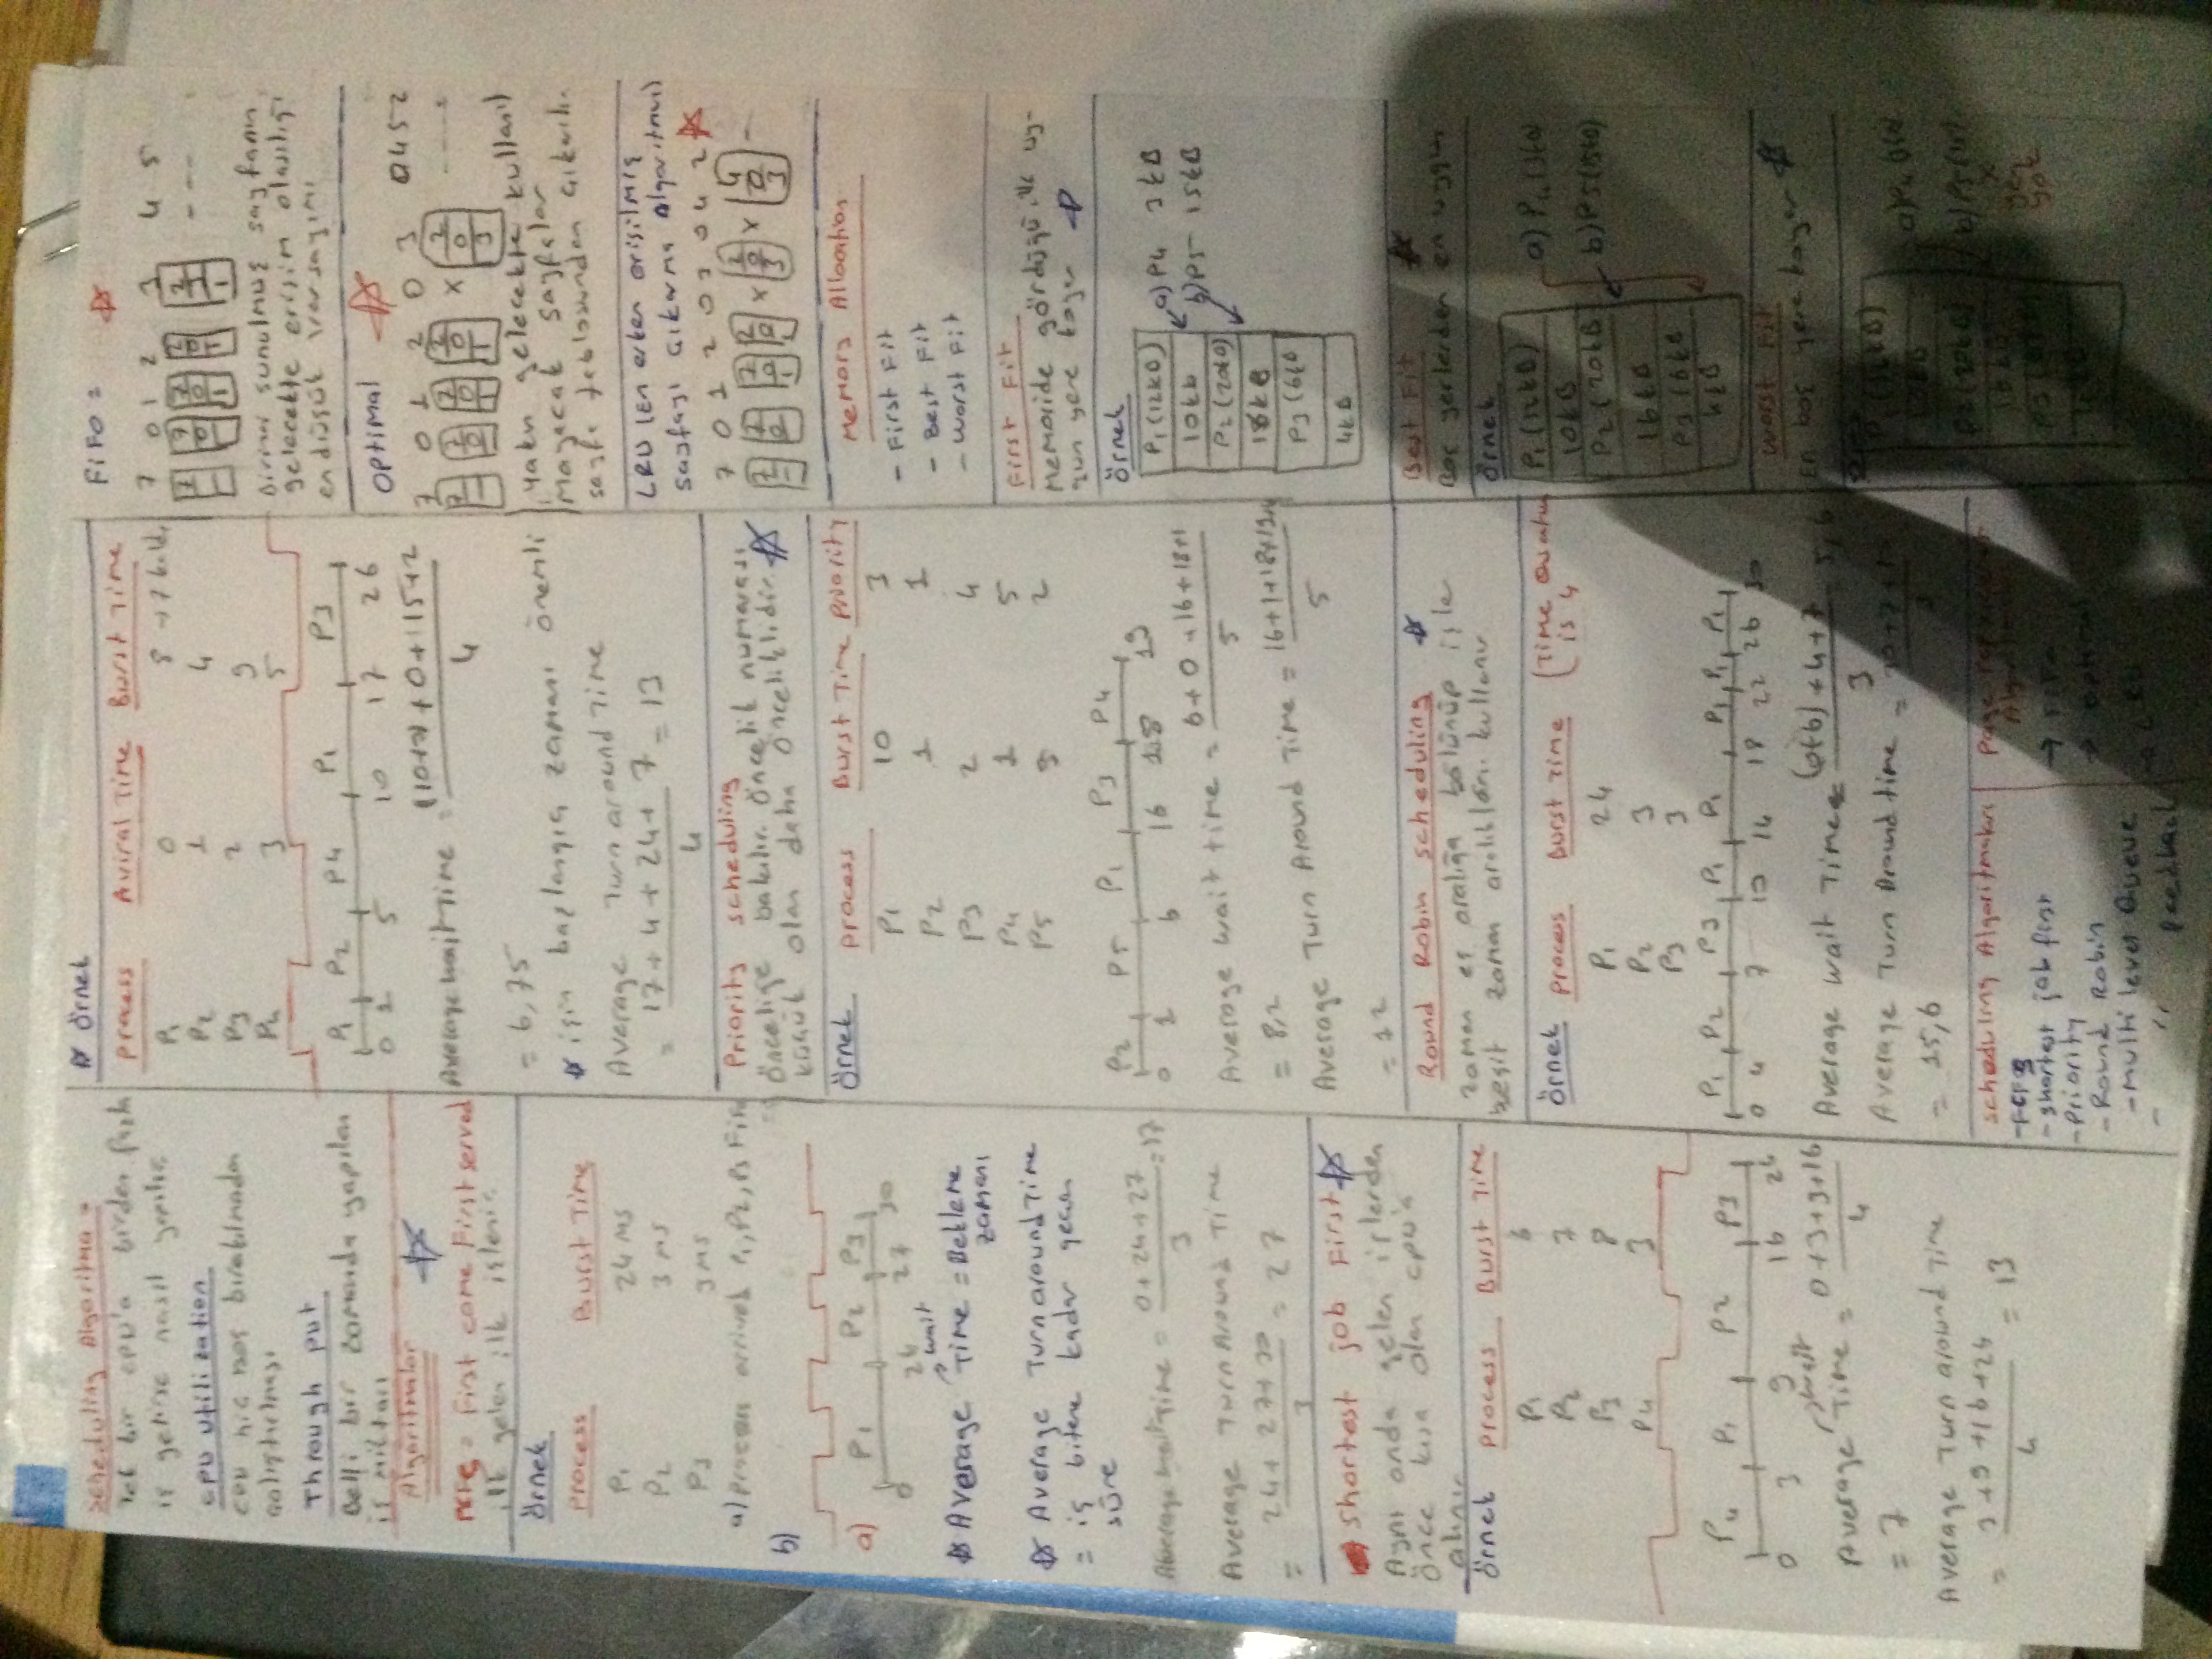 Scheduling Algoritma =
Tek bir cpu'a birden fazla
iş gelirse nasıl yapılır
CPU utilization
CPU hiç boş bırakılmadan
çalıştırılması
Through put
Belli bir zamanda yapılan
iş miktarı
Algoritmalar
= First come First served
ilk gelen ilk işlenir
örnek
Process Burst Time
P1 24 MS
P2 3 MS
P3 3 MS
a) process arrived P1, P2, P3
b)
a) P1 P2 P3
0 24 27 30
wait
Average Time = Bekleme
zamanı
Average Turn around Time
= iş bitene kadar geçen
süre
Average wait Time = 0+24+27 = 17
3
Average Turn Around Time
= 24+27+30 = 27
3
Shortest job First
Aynı anda gelen işlerden
önce kısa olan cpu'a
alınır
örnek Process Burst Time
P1 6
P2 7
P3 8
P4 3
P4 P1 P2 P3
0 3 9 16 24
wait
Average Time = 0+3+9+16
4
= 7
Average Turn around Time
= 3+9+16+24 = 13
4
örnek
Process Aviral Time Burst Time
P1 0 8 → 7 kaldı
P2 1 4
P3 2 9
P4 3 5
P1 P2 P4 P1 P3
0 1 5 10 17 26
Average wait Time = + 0 + 15+2
4
= 6,75
işin başlangıç zamanı önemli
Average Turn around Time
= 17+4+24+ 7 = 13
4
Priority scheduling
önceliğe bakılır. öncelik numarası
küçük olan daha önceliklidir.
örnek Process Burst Time Priority
P1 10 3
P2 1 1
P3 2 4
P4 1 5
P5 5 2
P2 P5 P1 P3 P4
0 1 6 16 18 19
Average wait time = 6+0+16+18+1
5
= 8,2
Average Turn Around Time = 16+1+18+19+6
5
= 12
Round Robin scheduling
zaman eş aralığa bölünüp işle
eşit zaman aralıkları kullanır
örnek Process Burst Time (Time
is 4
P1 24
P2 3
P3 3
P1 P2 P3 P1 P1 P1 P1 P1
0 4 7 10 14 18 22 26 30
Average wait Time = (0+6)+4+7 5,6
3
Average Turn Around time = 30+7+10
3
= 15,6
Scheduling Algoritmaları
-FCFS
-Shortest job first
-Priority
-Round Robin
-Multi level Queue
- " Feedback
Page
→ FIFO
→ optimal
→ LRU
FIFO =
7 0 1 2 3 4 5
sunulmuş sayfanın
gelecekte erişim olasılığı
en düşük varsayımı
optimal
7 0 1 2 0 3 0 4 5 2
yakın gelecekte kullanıl
mayacak sayfalar
sayfa tablosundan çıkarılır
LRU (En erken erişilmiş
sayfayı çıkarma Algoritması)
7 0 1 2 0 3 0 4 2
Memory Allocation
- First Fit
- Best Fit
- Worst Fit
First Fit
Memoride gördüğü ilk uy-
gun yere koyar
örnek
P1 (12kB) a) P4 3 kB
10kb b) P5 15kB
P2 (20kB)
P3 (6kB
4kB
Best Fit
Boş yerlerden en uygun
örnek
P1 (12kB)
10kB a) P4 (3kB)
P2 (20kB) b) P5 (15kB)
16kB
P3 (6kB
4kB
Worst Fit
En boş yere koyar
yer
yok